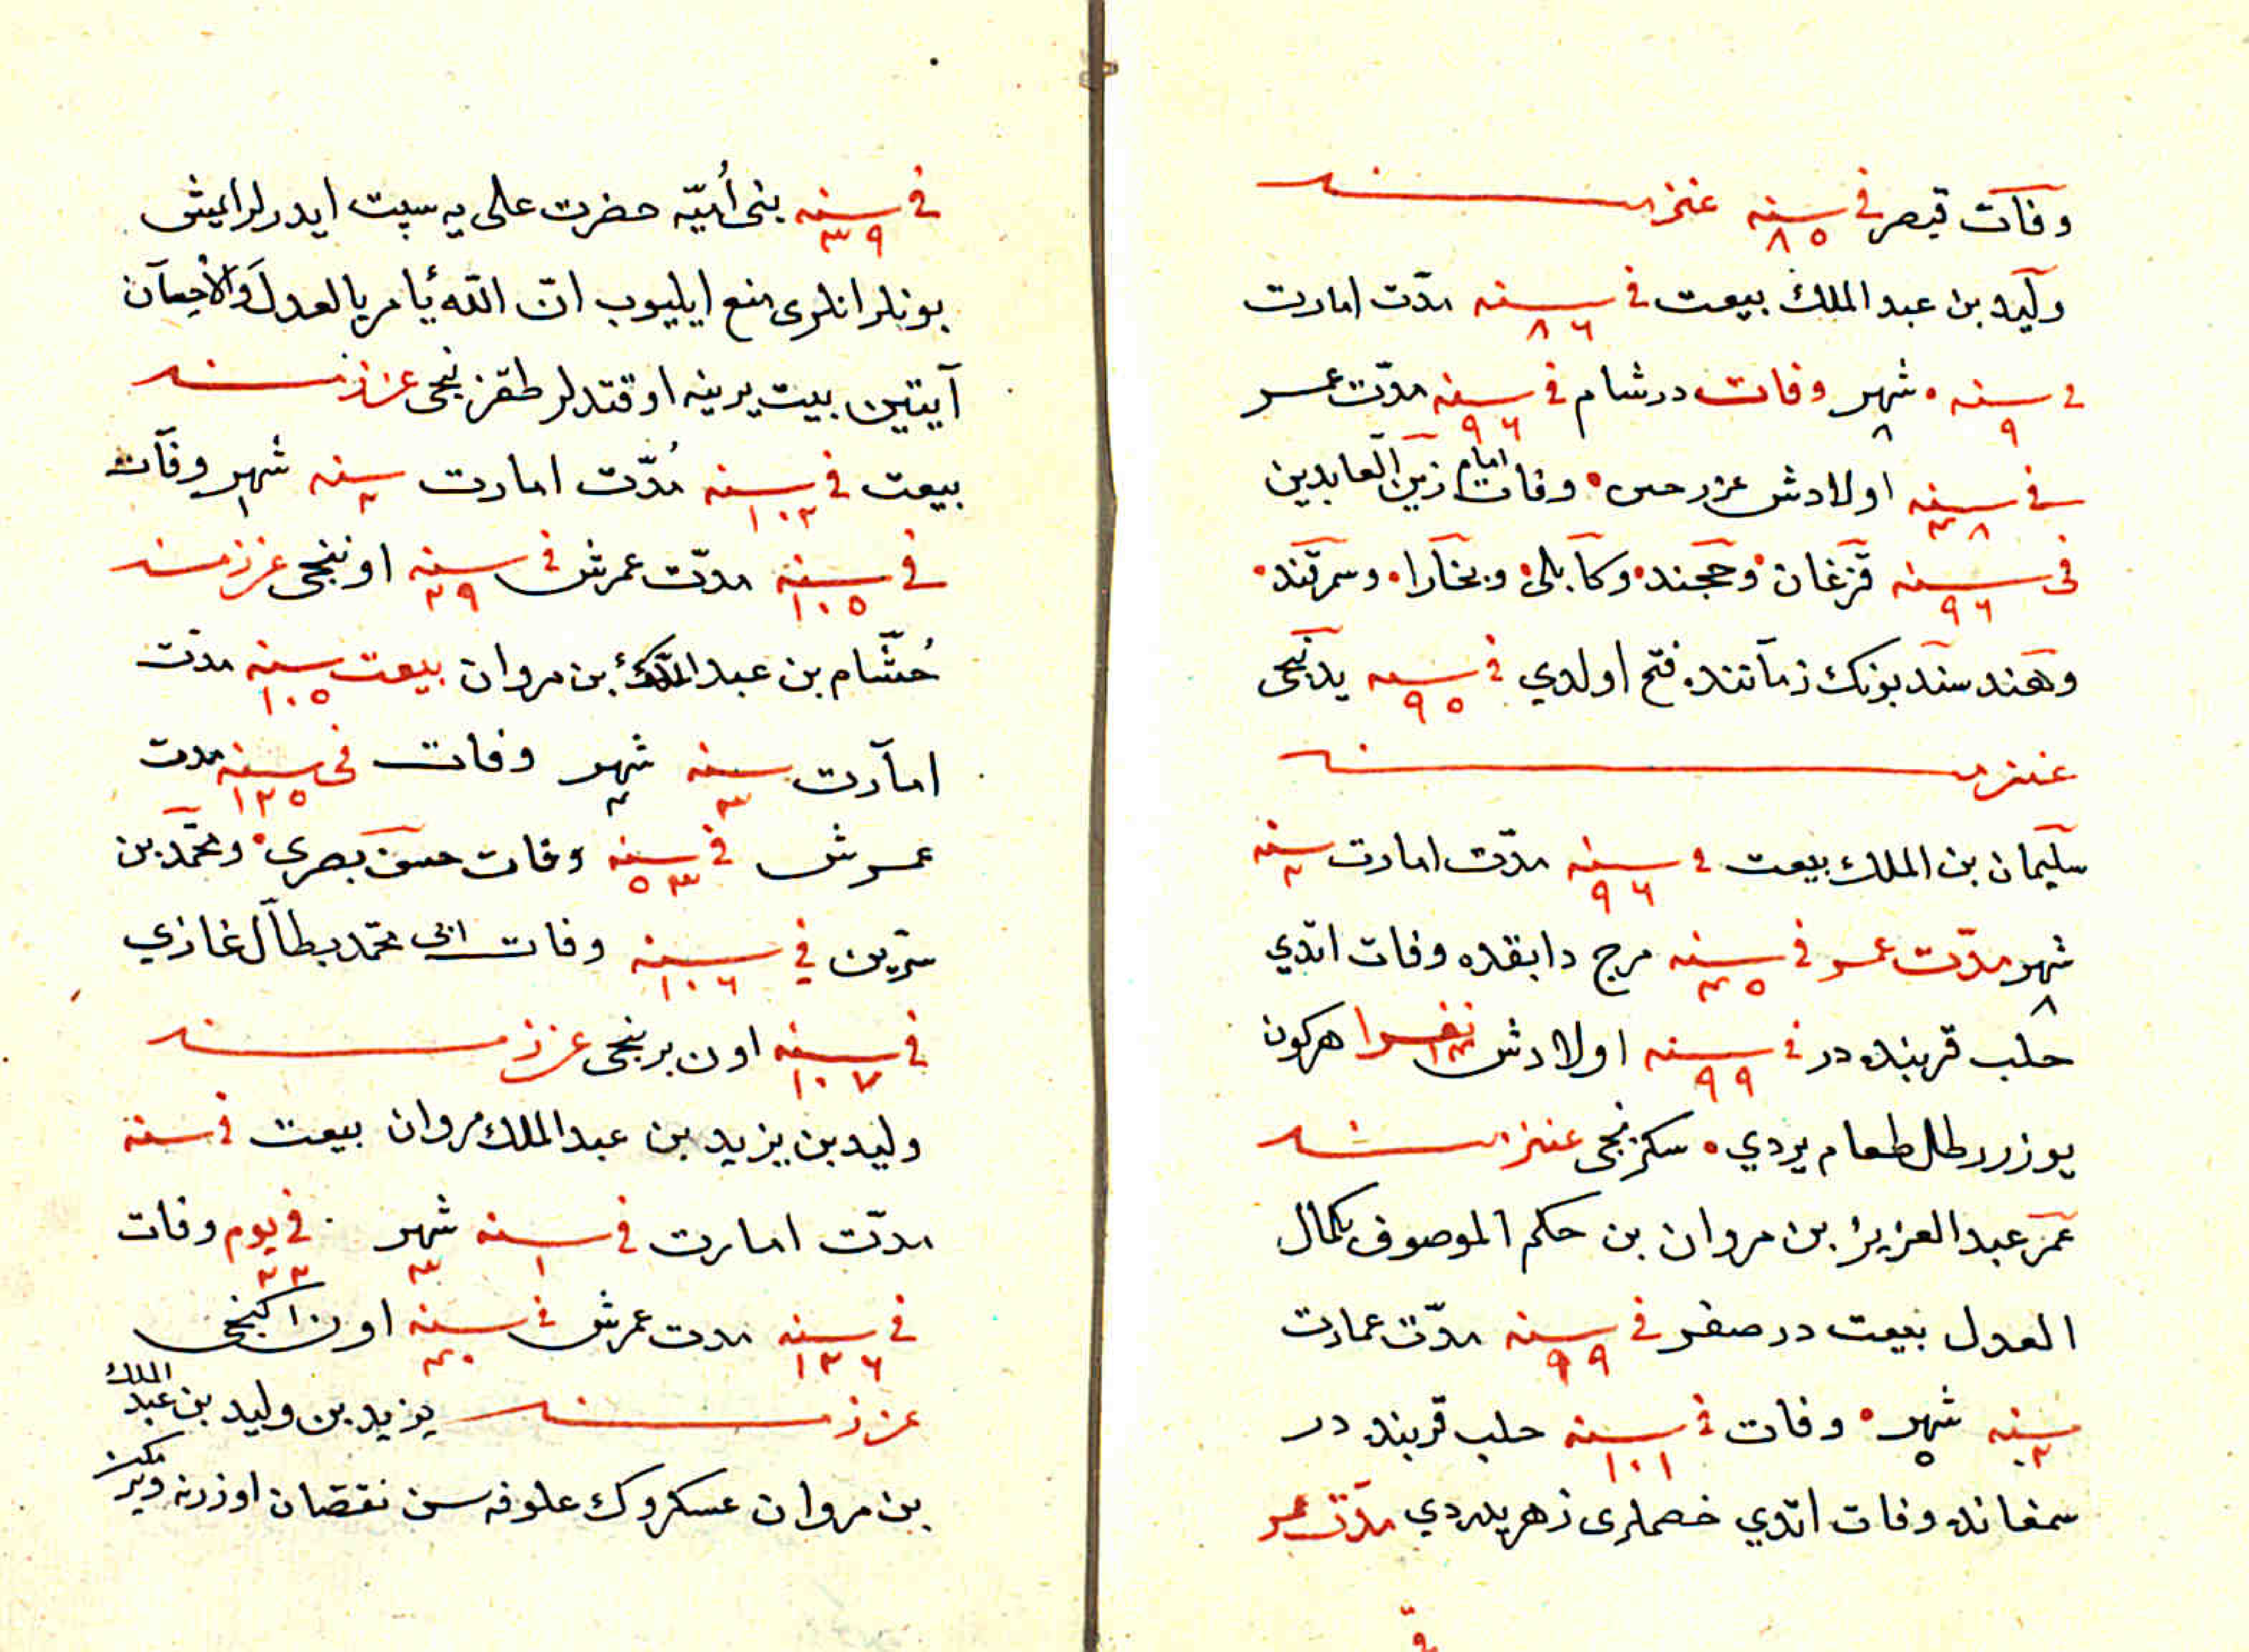 وفات قیصر فی سنه ٨٥ عنزسنه
ولید بن عبد الملك بیعت فی سنه ٨٦ مدّت امارت
فی سنه ٩ شهر ٨ وفات در شام فی سنه ٩٦ مدّت عمر
فی سنه ٤٨ اولادش وفات امام زین العابدین
فی سنه ٩٦ قرغان وحجند وکابلی وبخارا وسمرقند
وهند سند بونك زماننده فتح اولدي فی سنه ٩٥ یدنجی
عنزسنه
سلیمان بن الملك بیعت فی سنه ٩٦ مدّت امارت سنه ٢
شهر ٨ مدّت عمر فی سنه ٤٥ مرج دابقده وفات اتدي
حلب قربنده در فی سنه ٩٩ اولادش ١٤ نفر هرکون
یوز رطل طعام یردي سکزنجی عنزسنه
عمر عبد العزیز بن مروان بن حکم الموصوف بکمال
العدل بیعت در صفر فی سنه ٩٩ مدّت عمارت
سنه ٢ شهر ٥ وفات فی سنه ١٠١ حلب قربنده در
سمعانده وفات اتدي خصملری زهر یدردي مدّت عمر
فی سنه ٣٩ بنی اُمیّه حضرت علی یه سبت ایدرلر ایمیش
بونلر انلری منع ایلیوب انّ اللّه یأمر بالعدل والاحسان
آیتین بیت یرینه اوقتدلر طقزنجی عززسنه
بیعت فی سنه ١٠٢ مُدّت امارت سنه ٢ شهر ١ وفات
فی سنه ١٠٥ مدّت عمرش فی سنه ٢٩ اوننجی عززسنه
حُشّام بن عبد الملك بن مروان بیعت سنه ١٠٥ مدّت
امارت سنه شهر وفات فی سنه ١٢٥ مدت
عمرش فی سنه ٥٣ وفات حسن بصری ومحمّد بن
سرین فی سنه ١٠٦ وفات ابی محمّد بطّال غازي
فی سنه ١٠٧ اون برنجی عززسنه
ولید بن یزید بن عبد الملك مروان بیعت فی سنه
مدّت امارت فی سنه ١ شهر ٣ فی یوم ٢٢ وفات
فی سنه ١٢٦ مدت عمرش فی سنه ٤٠ اون اکنجی
عززسنه یزید بن ولید بن عبد الملك
بن مروان عسکروك علوفه سن نقصان اوزرنه